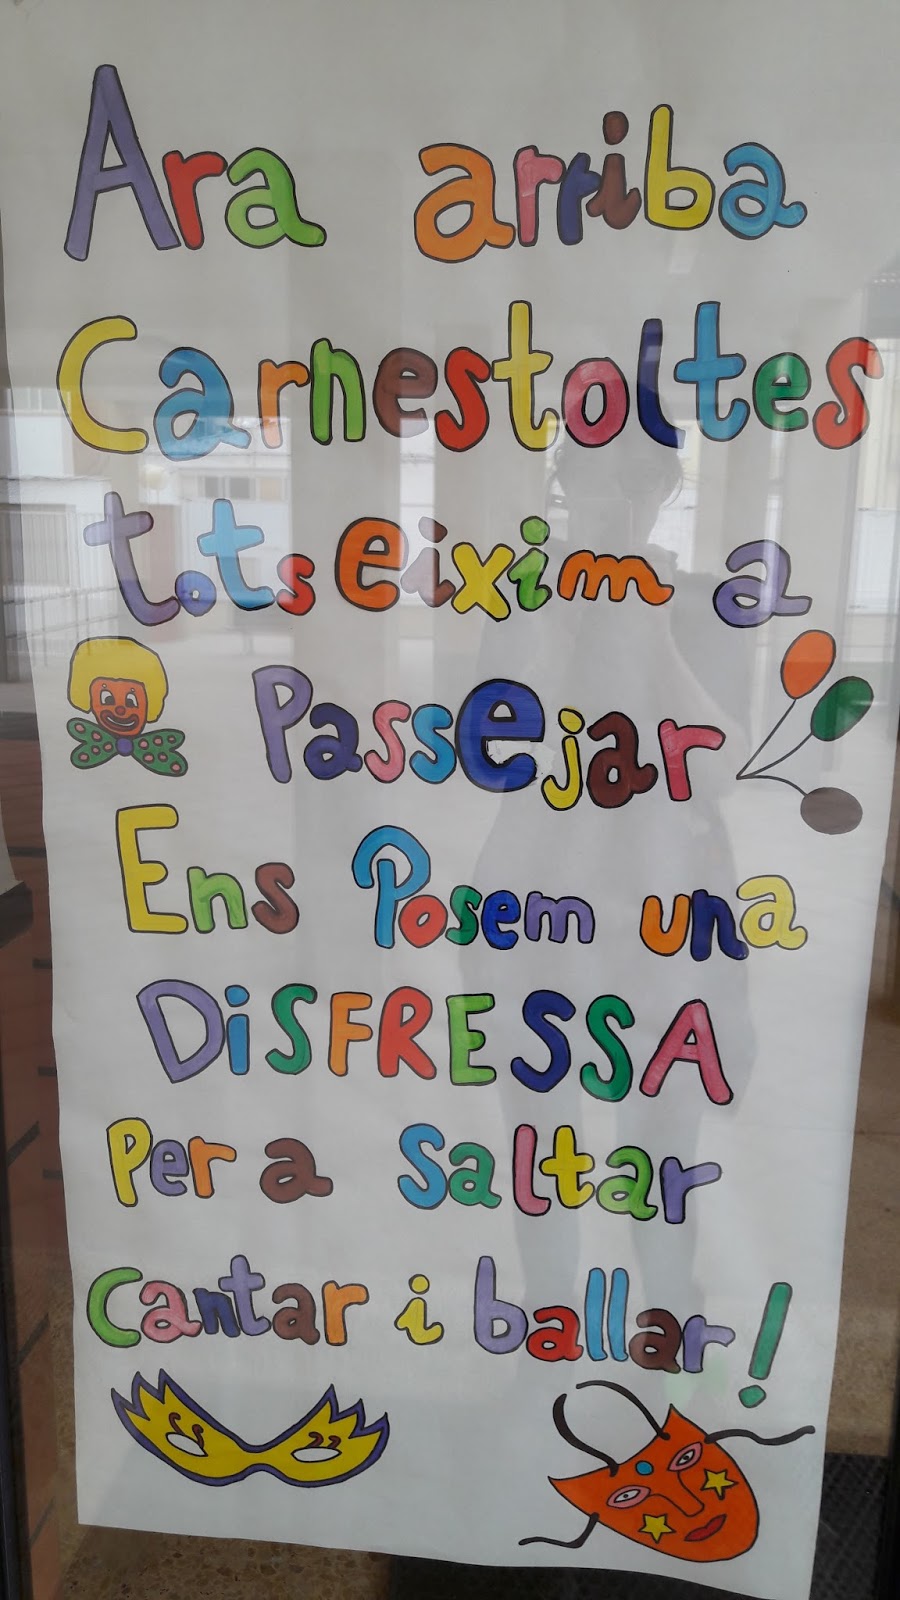 Ara arriba
Carnestoltes
tots eixim a
Passejar
Ens Posem una
DiSFRESSA
Per a Saltar
Cantar i ballar!